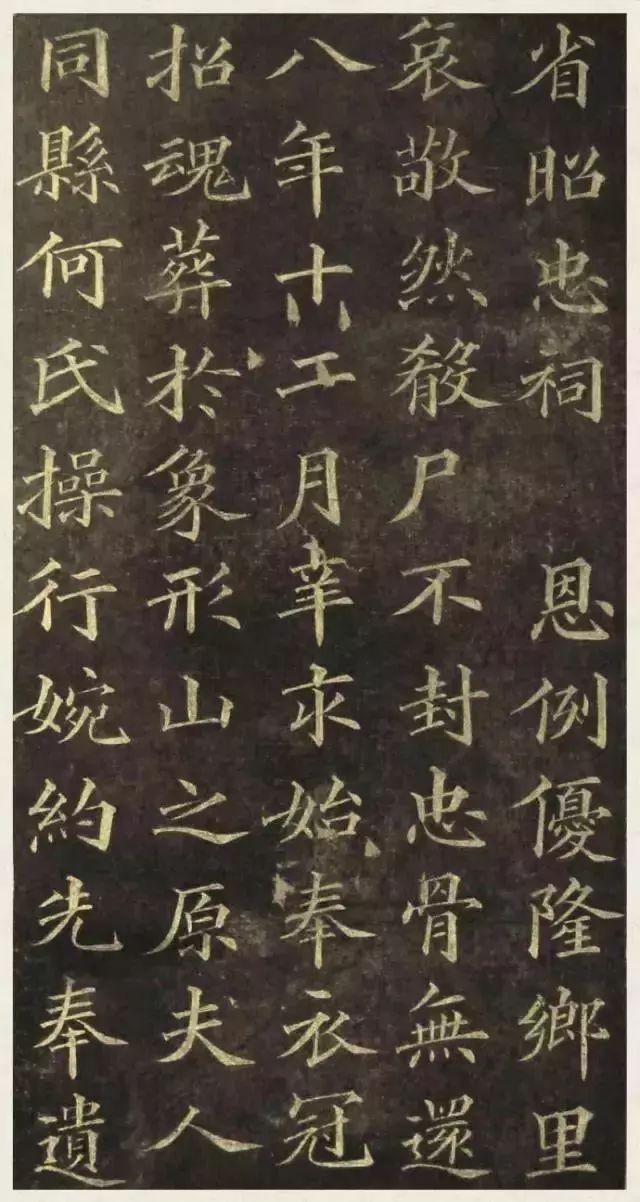 省昭忠祠 恩例優隆鄉里
哀敬然殽尸不封忠骨無還
八年十二月辛始奉衣冠
招魂葬於象形山之原夫人
同縣何氏操行婉約先奉遺